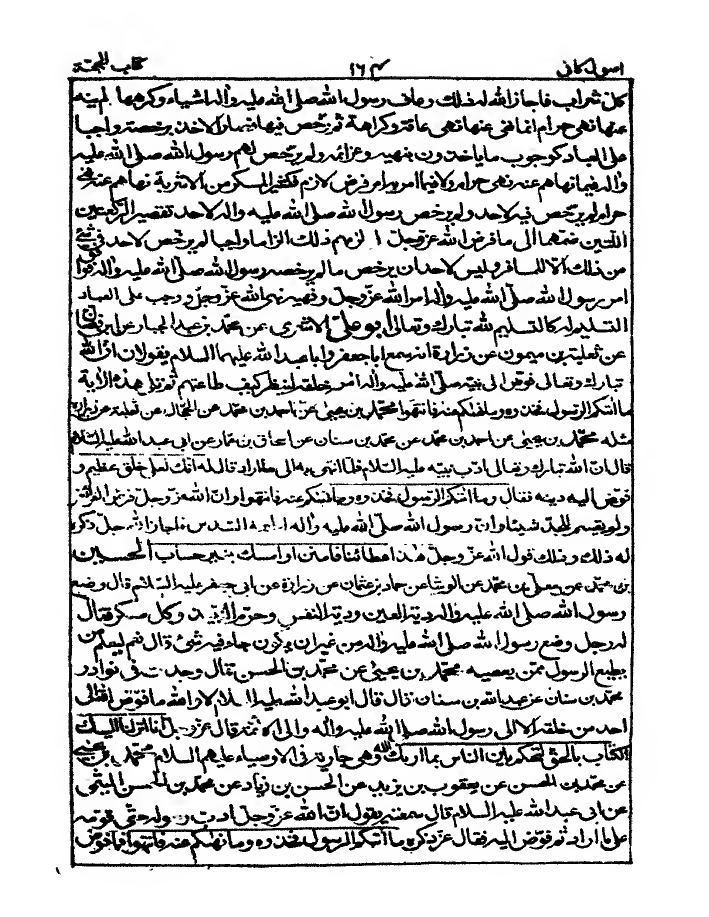 اصول كافى ١٦٤ كتاب الحجّة
كلّ شراب فاجاز الله له ذلك وعاف رسول الله صلّى الله عليه واٰله اشياء وكرهها لم ينه
عنها نهى حرام انما نهى عنها نهى عافة وكراهة ثم رخّص فيها فصار الاخذ برخصته واجبا
على العباد كوجوب ما ياخذون بنهيه وعزائمه ولم يرخّص لهم رسول الله صلّى الله عليه
واٰله فيما نهاهم عنه نهى حرام ولا فيما امر به امر فرض لازم فكثير المسكر من الاشربة نهاهم عنه نهى
حرام لم يرخّص فيه لاحد ولم يرخّص رسول الله صلّى الله عليه واٰله لاحد تقصير الركعتين
اللتين ضمّهما الى ما فرض الله عزّ وجلّ الزمهم ذلك الزاما واجبا لم يرخّص لاحد فى شئ
من ذلك الا للمسافر وليس لاحد ان يرخّص ما لم يرخّصه رسول الله صلّى الله عليه واٰله فوافق
امر رسول الله صلّى الله عليه واٰله امر الله عزّ وجلّ ونهيه نهى الله عزّ وجلّ ووجب على العباد
التسليم له كالتسليم لله تبارك وتعالى ابو علىّ الاشعرى عن محمّد بن عبد الجبار عن ابن فضّال
عن ثعلبة بن ميمون عن زرارة انه سمع ابا جعفر وابا عبد الله عليهما السلام يقولان انّ الله
تبارك وتعالى فوّض الى نبيّه صلّى الله عليه واٰله امر خلقه لينظر كيف طاعتهم ثم تلا هذه الاٰية
ما اٰتٰكم الرسول فخذوه وما نهٰكم عنه فانتهوا محمّد بن يحيى عن احمد بن محمّد عن الحجّال عن ثعلبة عن زرارة
مثله محمّد بن يحيى عن احمد بن محمّد عن محمّد بن سنان عن اسحاق بن عمّار عن ابى عبد الله عليه السّلام
قال انّ الله تبارك وتعالى ادّب نبيّه عليه السّلام فلمّا انتهى به الى ما اراد قال له انّك لعلى خلق عظيم و
فوّض اليه دينه فقال وما اٰتٰكم الرسول فخذوه وما نهٰكم عنه فانتهوا وانّ الله عزّ وجلّ فرض الفرائض
ولم يقسم للجدّ شيئا وانّ رسول الله صلّى الله عليه واٰله اطعمه السّدس فاجاز الله جلّ ذكره
له ذلك وذلك قول الله عزّ وجلّ هذا عطائنا فامنن او امسك بغير حساب الحسين
بن محمّد عن معلّى بن محمّد عن الوشّا عن حمّاد بن عثمان عن زرارة عن ابى جعفر عليه السّلام قال وضع
رسول الله صلّى الله عليه واٰله دية العين ودية النفس وحرّم النّبيذ وكل مسكر فقال
له رجل وضع رسول الله صلّى الله عليه واٰله من غير ان يكون جاء فيه شئ قال نعم ليعلم من
يطيع الرسول ممّن يعصيه محمّد بن يحيى عن محمّد بن الحسن قال وجدت فى نوادر
محمّد بن سنان عن عبد الله بن سنان قال قال ابو عبد الله عليه السلام لا والله ما فوّض الله الى
احد من خلقه الا الى رسول الله صلّى الله عليه واٰله والى الائمّة قال عزّ وجلّ انّا انزلنا اليك
الكتاب بالحقّ لتحكم بين الناس بما اريك الله وهى جارية فى الاوصياء عليهم السلام محمّد بن يحيى
عن محمّد بن الحسن عن يعقوب بن يزيد عن الحسن بن زياد عن محمّد بن الحسن الميثمى
عن ابى عبد الله عليه السلام قال سمعته يقول انّ الله عزّ وجلّ ادّب رسوله حتّى قوّمه
على ما اراد ثم فوّض اليه فقال عزّ ذكره ما اٰتٰكم الرسول فخذوه وما نهٰكم عنه فانتهوا فما فوّض